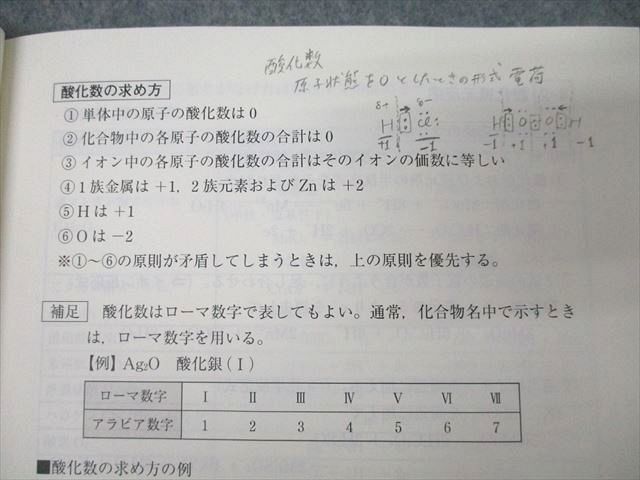 酸化数
原子状態を0としたときの形式電荷
酸化数の求め方
①単体中の原子の酸化数は0
②化合物中の各原子の酸化数の合計は0
③イオン中の各原子の酸化数の合計はそのイオンの価数に等しい
④1族金属は+1，2族元素およびZnは+2
⑤Hは+1
⑥Oは−2
※①〜⑥の原則が矛盾してしまうときは，上の原則を優先する。
δ+ δ−
H Cl
+1 −1
H O O H
−1 +1 +1 −1
補足 酸化数はローマ数字で表してもよい。通常，化合物名中で示すとき
は，ローマ数字を用いる。
【例】Ag₂O 酸化銀(Ⅰ)
ローマ数字 Ⅰ Ⅱ Ⅲ Ⅳ Ⅴ Ⅵ Ⅶ
アラビア数字 1 2 3 4 5 6 7
■酸化数の求め方の例